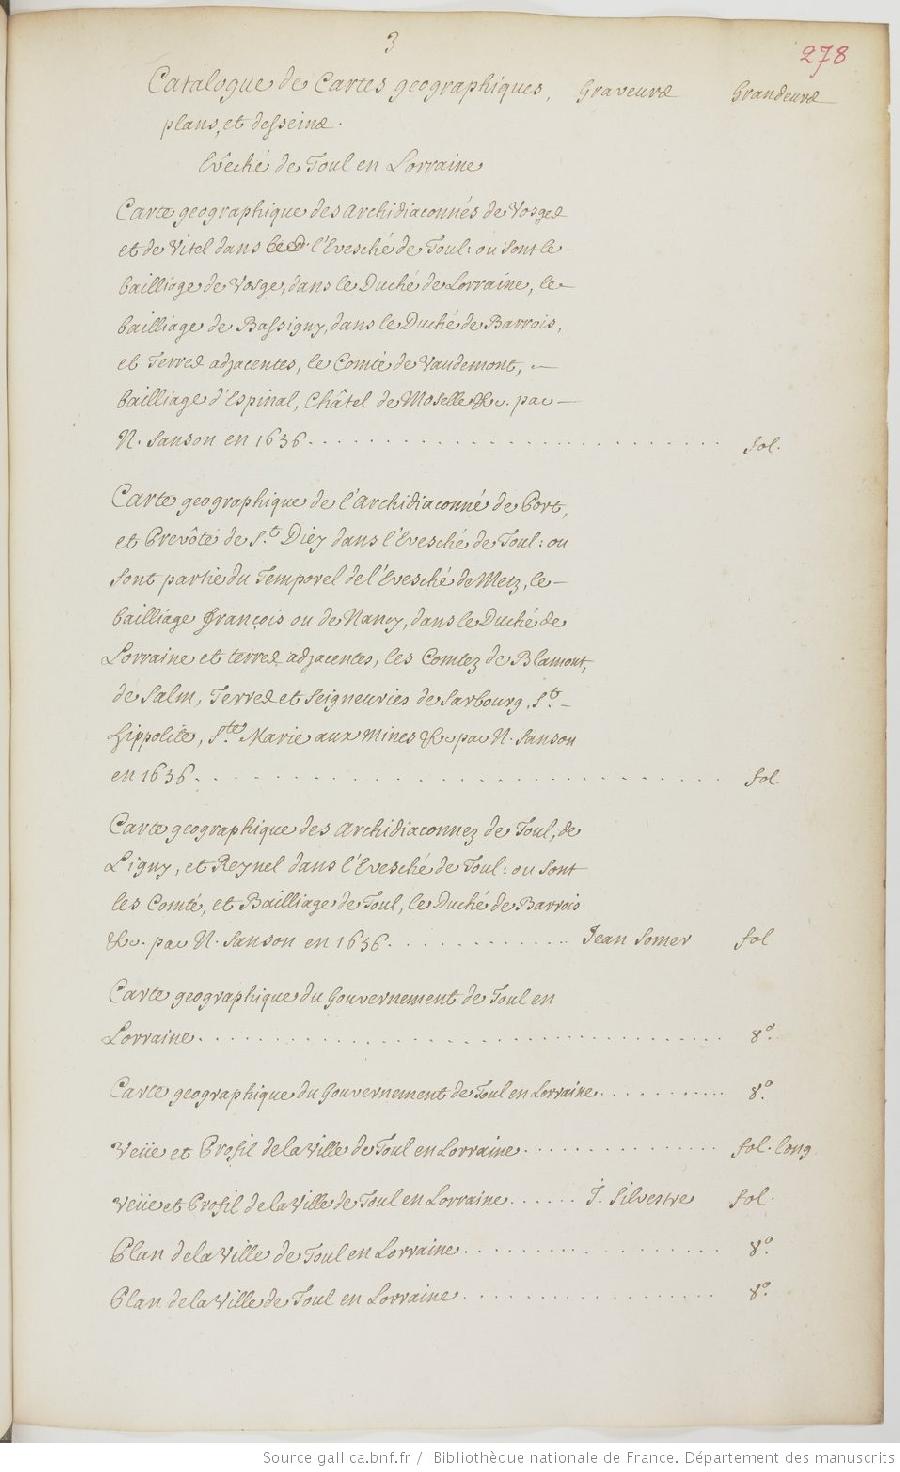 3
278
Catalogue de Cartes geographiques, Graveurs Grandeurs
plans, et desseins.
Evêché de Toul en Lorraine
Carte geographique des Archidiaconnés de Vosges
et de Vitel dans l'Evesché de Toul: ou sont le
bailliage de Vosge, dans le Duché de Lorraine, le
bailliage de Bassigny, dans le Duché de Barrois,
et Terres adjacentes, le Comté de Vaudemont,
bailliage d'Espinal, Châtel de Moselle &c. par
N. Sanson en 1656. fol.
Carte geographique de l'Archidiaconné de Port,
et Prevôté de St. Diey dans l'Evesché de Toul: ou
sont partie du Temporel de l'Evesché de Metz, le
bailliage François ou de Nancy, dans le Duché de
Lorraine et terres adjacentes, les Comtez de Blamont,
de Salm, Terres et Seigneuries de Sarbourg, St.
hippolite, Ste. Marie aux Mines &c. par N. Sanson
en 1656. fol.
Carte geographique des Archidiaconnez de Toul, de
Ligny, et Reynel dans l'Evesché de Toul: ou sont
les Comté, et Bailliage de Toul, le Duché de Barrois
&c. par N. Sanson en 1656. Jean Somer fol
Carte geographique du Gouvernement de Toul en
Lorraine. 8°.
Carte geographique du Gouvernement de Toul en Lorraine. 8°.
Veüe et Profil de la Ville de Toul en Lorraine. fol. long
Veüe et Profil de la Ville de Toul en Lorraine. I. Silvestre fol.
Plan de la Ville de Toul en Lorraine. 8°.
Plan de la Ville de Toul en Lorraine. 8°.
Source gallica.bnf.fr / Bibliothèque nationale de France. Département des manuscrits